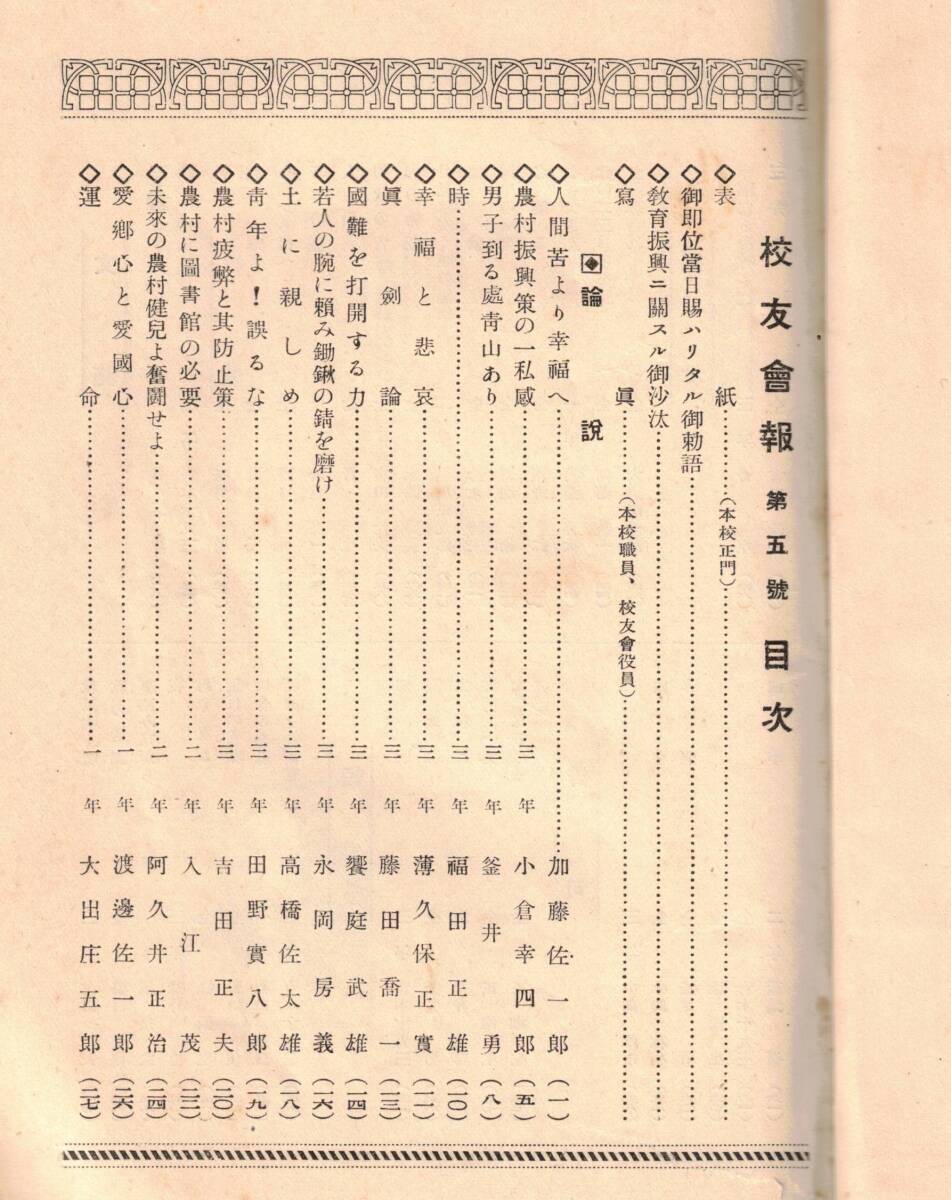 校友會報 第五號 目次
◇表紙……(本校正門)……
◇御即位當日賜ハリタル御勅語……
◇敎育振興ニ關スル御沙汰……
◇寫眞……(本校職員、校友會役員)……
論說
◇人間苦より幸福へ……加藤佐一郎(一)
◇農村振興策の一私感……三年 小倉幸四郎(五)
◇男子到る處靑山あり……三年 釜井勇(八)
◇時……三年 福田正雄(一〇)
◇幸福と悲哀……三年 薄久保正實(一一)
◇眞劍論……三年 藤田喬一(一三)
◇國難を打開する力……三年 饗庭武雄(一四)
◇若人の腕に賴み鋤鍬の錆を磨け……三年 永岡房義(一六)
◇土に親しめ……三年 高橋佐太雄(一八)
◇靑年よ!誤るな……三年 田野實八郎(一九)
◇農村疲弊と其防止策……三年 吉田正夫(二〇)
◇農村に圖書館の必要……二年 入江茂(二三)
◇未來の農村健兒よ奮鬪せよ……二年 阿久井正治(二四)
◇愛鄕心と愛國心……一年 渡邊佐一郎(二六)
◇運命……一年 大出庄五郎(二七)